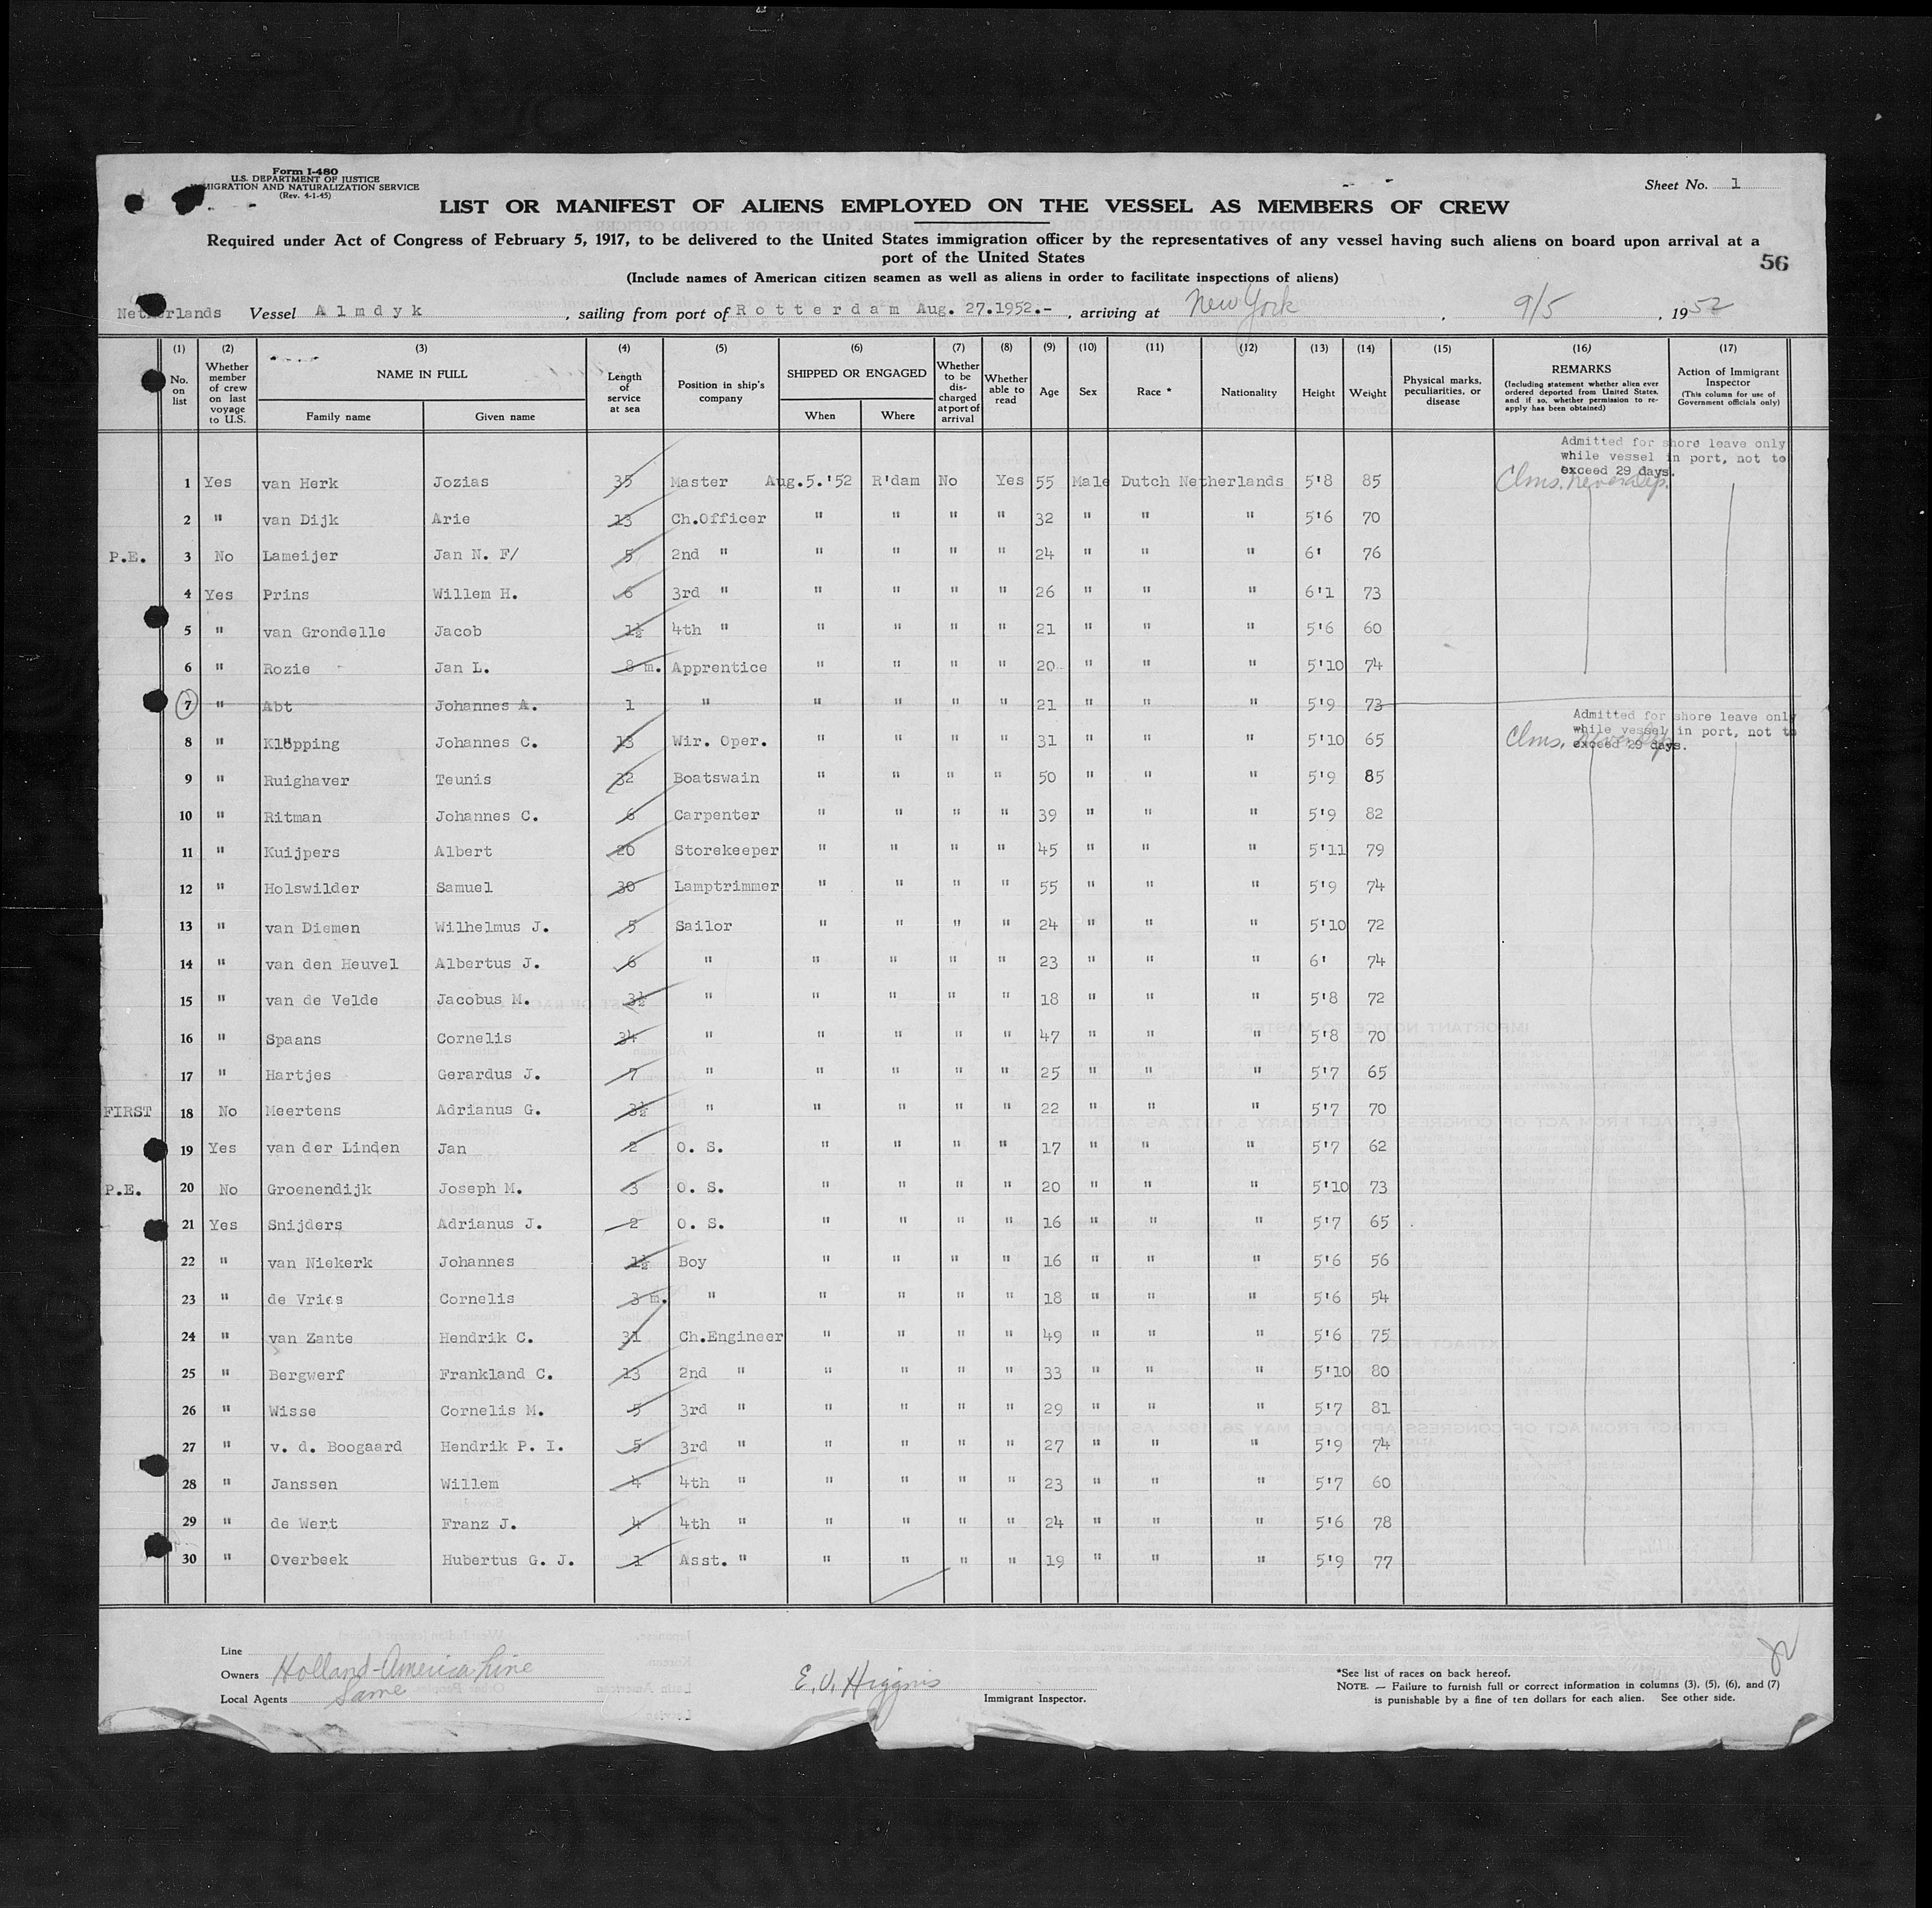 Form I-480
U.S. DEPARTMENT OF JUSTICE
IMMIGRATION AND NATURALIZATION SERVICE
(Rev. 4-1-45)
Sheet No. 1
LIST OR MANIFEST OF ALIENS EMPLOYED ON THE VESSEL AS MEMBERS OF CREW
Required under Act of Congress of February 5, 1917, to be delivered to the United States immigration officer by the representatives of any vessel having such aliens on board upon arrival at a
port of the United States
56
(Include names of American citizen seamen as well as aliens in order to facilitate inspections of aliens)
Netherlands Vessel Almdyk, sailing from port of Rotterdam Aug. 27.1952.-, arriving at New York, 9/5, 1952
(1) (2) (3) (4) (5) (6) (7) (8) (9) (10) (11) (12) (13) (14) (15) (16) (17)
No. on list
Whether member of crew on last voyage to U.S.
NAME IN FULL
Family name
Given name
Length of service at sea
Position in ship's company
SHIPPED OR ENGAGED
When
Where
Whether to be discharged at port of arrival
Whether able to read
Age
Sex
Race *
Nationality
Height
Weight
Physical marks, peculiarities, or disease
REMARKS
(Including statement whether alien ever ordered deported from United States, and if so, whether permission to re-apply has been obtained)
Action of Immigrant Inspector
(This column for use of Government officials only)
Admitted for shore leave only
while vessel in port, not to
exceed 29 days.
1 Yes van Herk Jozias 35 Master Aug.5.'52 R'dam No Yes 55 Male Dutch Netherlands 5'8 85 Clms. never dep.
2 " van Dijk Arie 13 Ch.Officer " " " " 32 " " " 5'6 70
P.E. 3 No Lameijer Jan N. F/ 5 2nd " " " " " 24 " " " 6' 76
4 Yes Prins Willem H. 6 3rd " " " " " 26 " " " 6'1 73
5 " van Grondelle Jacob 1½ 4th " " " " " 21 " " " 5'6 60
6 " Rozie Jan L. 8 m. Apprentice " " " " 20 " " " 5'10 74
7 " Abt Johannes A. 1 " " " " " 21 " " " 5'9 73
Admitted for shore leave only
while vessel in port, not to
exceed 29 days.
8 " Klöpping Johannes C. 13 Wir. Oper. " " " " 31 " " " 5'10 65 Clms. never dep.
9 " Ruighaver Teunis 32 Boatswain " " " " 50 " " " 5'9 85
10 " Ritman Johannes C. 6 Carpenter " " " " 39 " " " 5'9 82
11 " Kuijpers Albert 20 Storekeeper " " " " 45 " " " 5'11 79
12 " Holswilder Samuel 30 Lamptrimmer " " " " 55 " " " 5'9 74
13 " van Diemen Wilhelmus J. 5 Sailor " " " " 24 " " " 5'10 72
14 " van den Heuvel Albertus J. 6 " " " " " 23 " " " 6' 74
15 " van de Velde Jacobus M. 3½ " " " " " 18 " " " 5'8 72
16 " Spaans Cornelis 34 " " " " " 47 " " " 5'8 70
17 " Hartjes Gerardus J. 7 " " " " " 25 " " " 5'7 65
FIRST 18 No Meertens Adrianus G. 3½ " " " " " 22 " " " 5'7 70
19 Yes van der Linden Jan 2 O. S. " " " " 17 " " " 5'7 62
P.E. 20 No Groenendijk Joseph M. 3 O. S. " " " " 20 " " " 5'10 73
21 Yes Snijders Adrianus J. 2 O. S. " " " " 16 " " " 5'7 65
22 " van Niekerk Johannes 1½ Boy " " " " 16 " " " 5'6 56
23 " de Vries Cornelis 3 m. " " " " " 18 " " " 5'6 54
24 " van Zante Hendrik C. 31 Ch.Engineer " " " " 49 " " " 5'6 75
25 " Bergwerf Frankland C. 13 2nd " " " " " 33 " " " 5'10 80
26 " Wisse Cornelis M. 5 3rd " " " " " 29 " " " 5'7 81
27 " v. d. Boogaard Hendrik P. I. 5 3rd " " " " " 27 " " " 5'9 74
28 " Janssen Willem 4 4th " " " " " 23 " " " 5'7 60
29 " de Wert Franz J. 4 4th " " " " " 24 " " " 5'6 78
30 " Overbeek Hubertus G. J. 1 Asst. " " " " " 19 " " " 5'9 77
Line
Owners Holland-America Line
Local Agents Same
E. V. Higgins
Immigrant Inspector.
*See list of races on back hereof.
NOTE. — Failure to furnish full or correct information in columns (3), (5), (6), and (7)
is punishable by a fine of ten dollars for each alien. See other side.